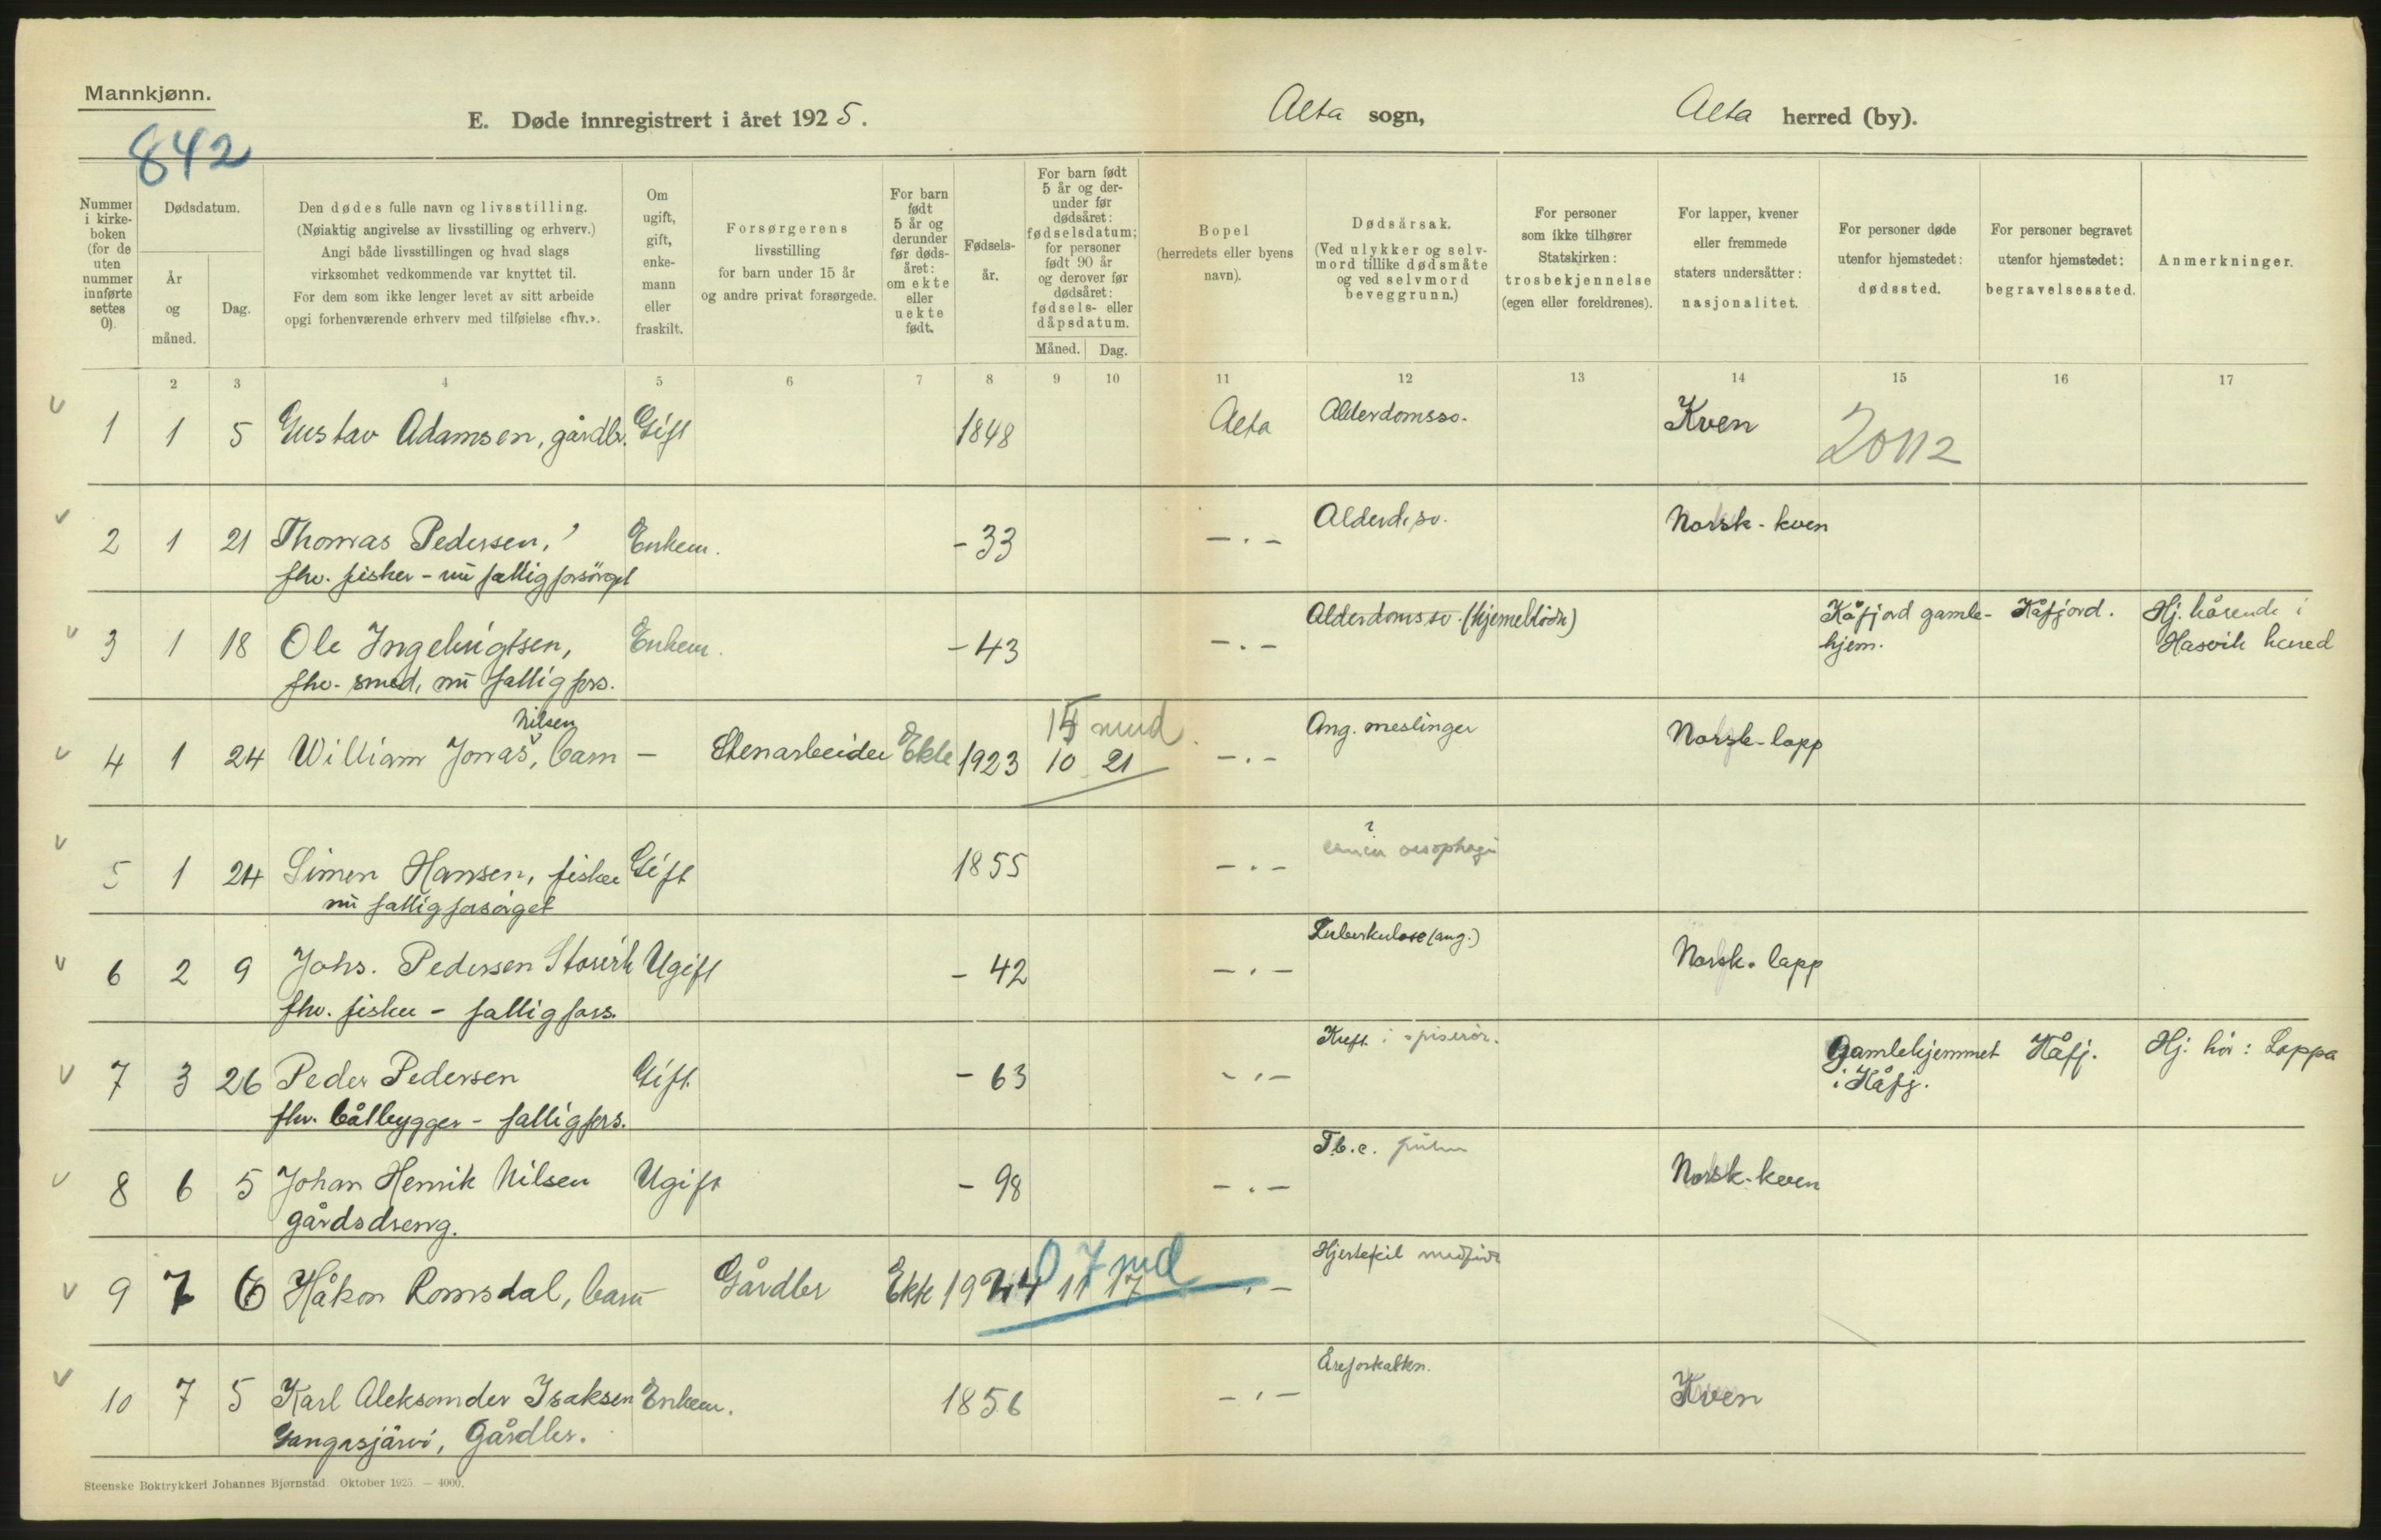 Mannkjønn.
842
E. Døde innregistrert i året 1925. Alta sogn, Alta herred (by).
Nummer i kirkeboken (for de uten nummer innførte settes 0).
Dødsdatum.
År og måned.
Dag.
Den dødes fulle navn og livsstilling.
(Nøiaktig angivelse av livsstilling og erhverv.)
Angi både livsstillingen og hvad slags
virksomhet vedkommende var knyttet til.
For dem som ikke lenger levet av sitt arbeide
opgi forhenværende erhverv med tilføielse «fhv.».
Om ugift, gift, enkemann eller fraskilt.
Forsørgerens
livsstilling
for barn under 15 år
og andre privat forsørgede.
For barn født 5 år og derunder før dødsåret: om ekte eller uekte født.
Fødselsår.
For barn født 5 år og derunder før dødsåret: fødselsdatum; for personer født 90 år og derover før dødsåret: fødsels- eller dåpsdatum.
Måned. Dag.
Bopel
(herredets eller byens
navn).
Dødsårsak.
(Ved ulykker og selvmord tillike dødsmåte og ved selvmord beveggrunn.)
For personer
som ikke tilhører
Statskirken:
trosbekjennelse
(egen eller foreldrenes).
For lapper, kvener
eller fremmede
staters undersåtter:
nasjonalitet.
For personer døde
utenfor hjemstedet:
dødssted.
For personer begravet
utenfor hjemstedet:
begravelsessted.
Anmerkninger.
2 3 4 5 6 7 8 9 10 11 12 13 14 15 16 17
v 1 1 5 Gustav Adamsen, gårdbr. Gift 1848 Alta Alderdomssv. Kven 20112
v 2 1 21 Thomas Pedersen, Enkem. - 33 - . - Alderd. sv. Norsk - kven
fhv. fisker - nu fattigforsørget
v 3 1 18 Ole Ingebrigtsen, Enkem. - 43 - . - Alderdomssv. (hjerneblødn) Kåfjord gamle- Kåfjord. Hj. hörende i
fhv. smed, nu fattigfors. hjem. Hasvik herred
Nilsen 15 mnd.
v 4 1 24 William Jonas, barn - Stenarbeider Ekte 1923 10 21 - . - Ang. meslinger Norsk-lapp
v 5 1 24 Simen Hansen, fisker Gift 1855 - . - ? cancer oesophagi
nu fattigforsørget
v 6 2 9 Johs. Pedersen Storvik Ugift - 42 - . - Tuberkulose (ang.) Norsk-lapp
fhv. fisker - fattigfors.
v 7 3 26 Peder Pedersen Gift - 63 - . - Kreft i spiserör. Gamlehjemmet Kåfj. Hj. hör: Loppa
fhv. båtbygger - fattigfors. i Kåfj.
v 8 6 5 Johan Henrik Nilsen Ugift - 98 - . - Tb.c. pulm Norsk-kven
gårdsdreng.
0 7 md
v 9 7 6 Håkon Romsdal, barn - Gårdbr Ekte 1924 11 17 . - Hjertefeil medfødt
v 10 7 5 Karl Aleksander Isaksen Enkem. 1856 - . - Åreforkalkn. Kven
Gangasjärvi, Gårdbr.
Steenske Boktrykkeri Johannes Bjørnstad. Oktober 1925 — 4000.